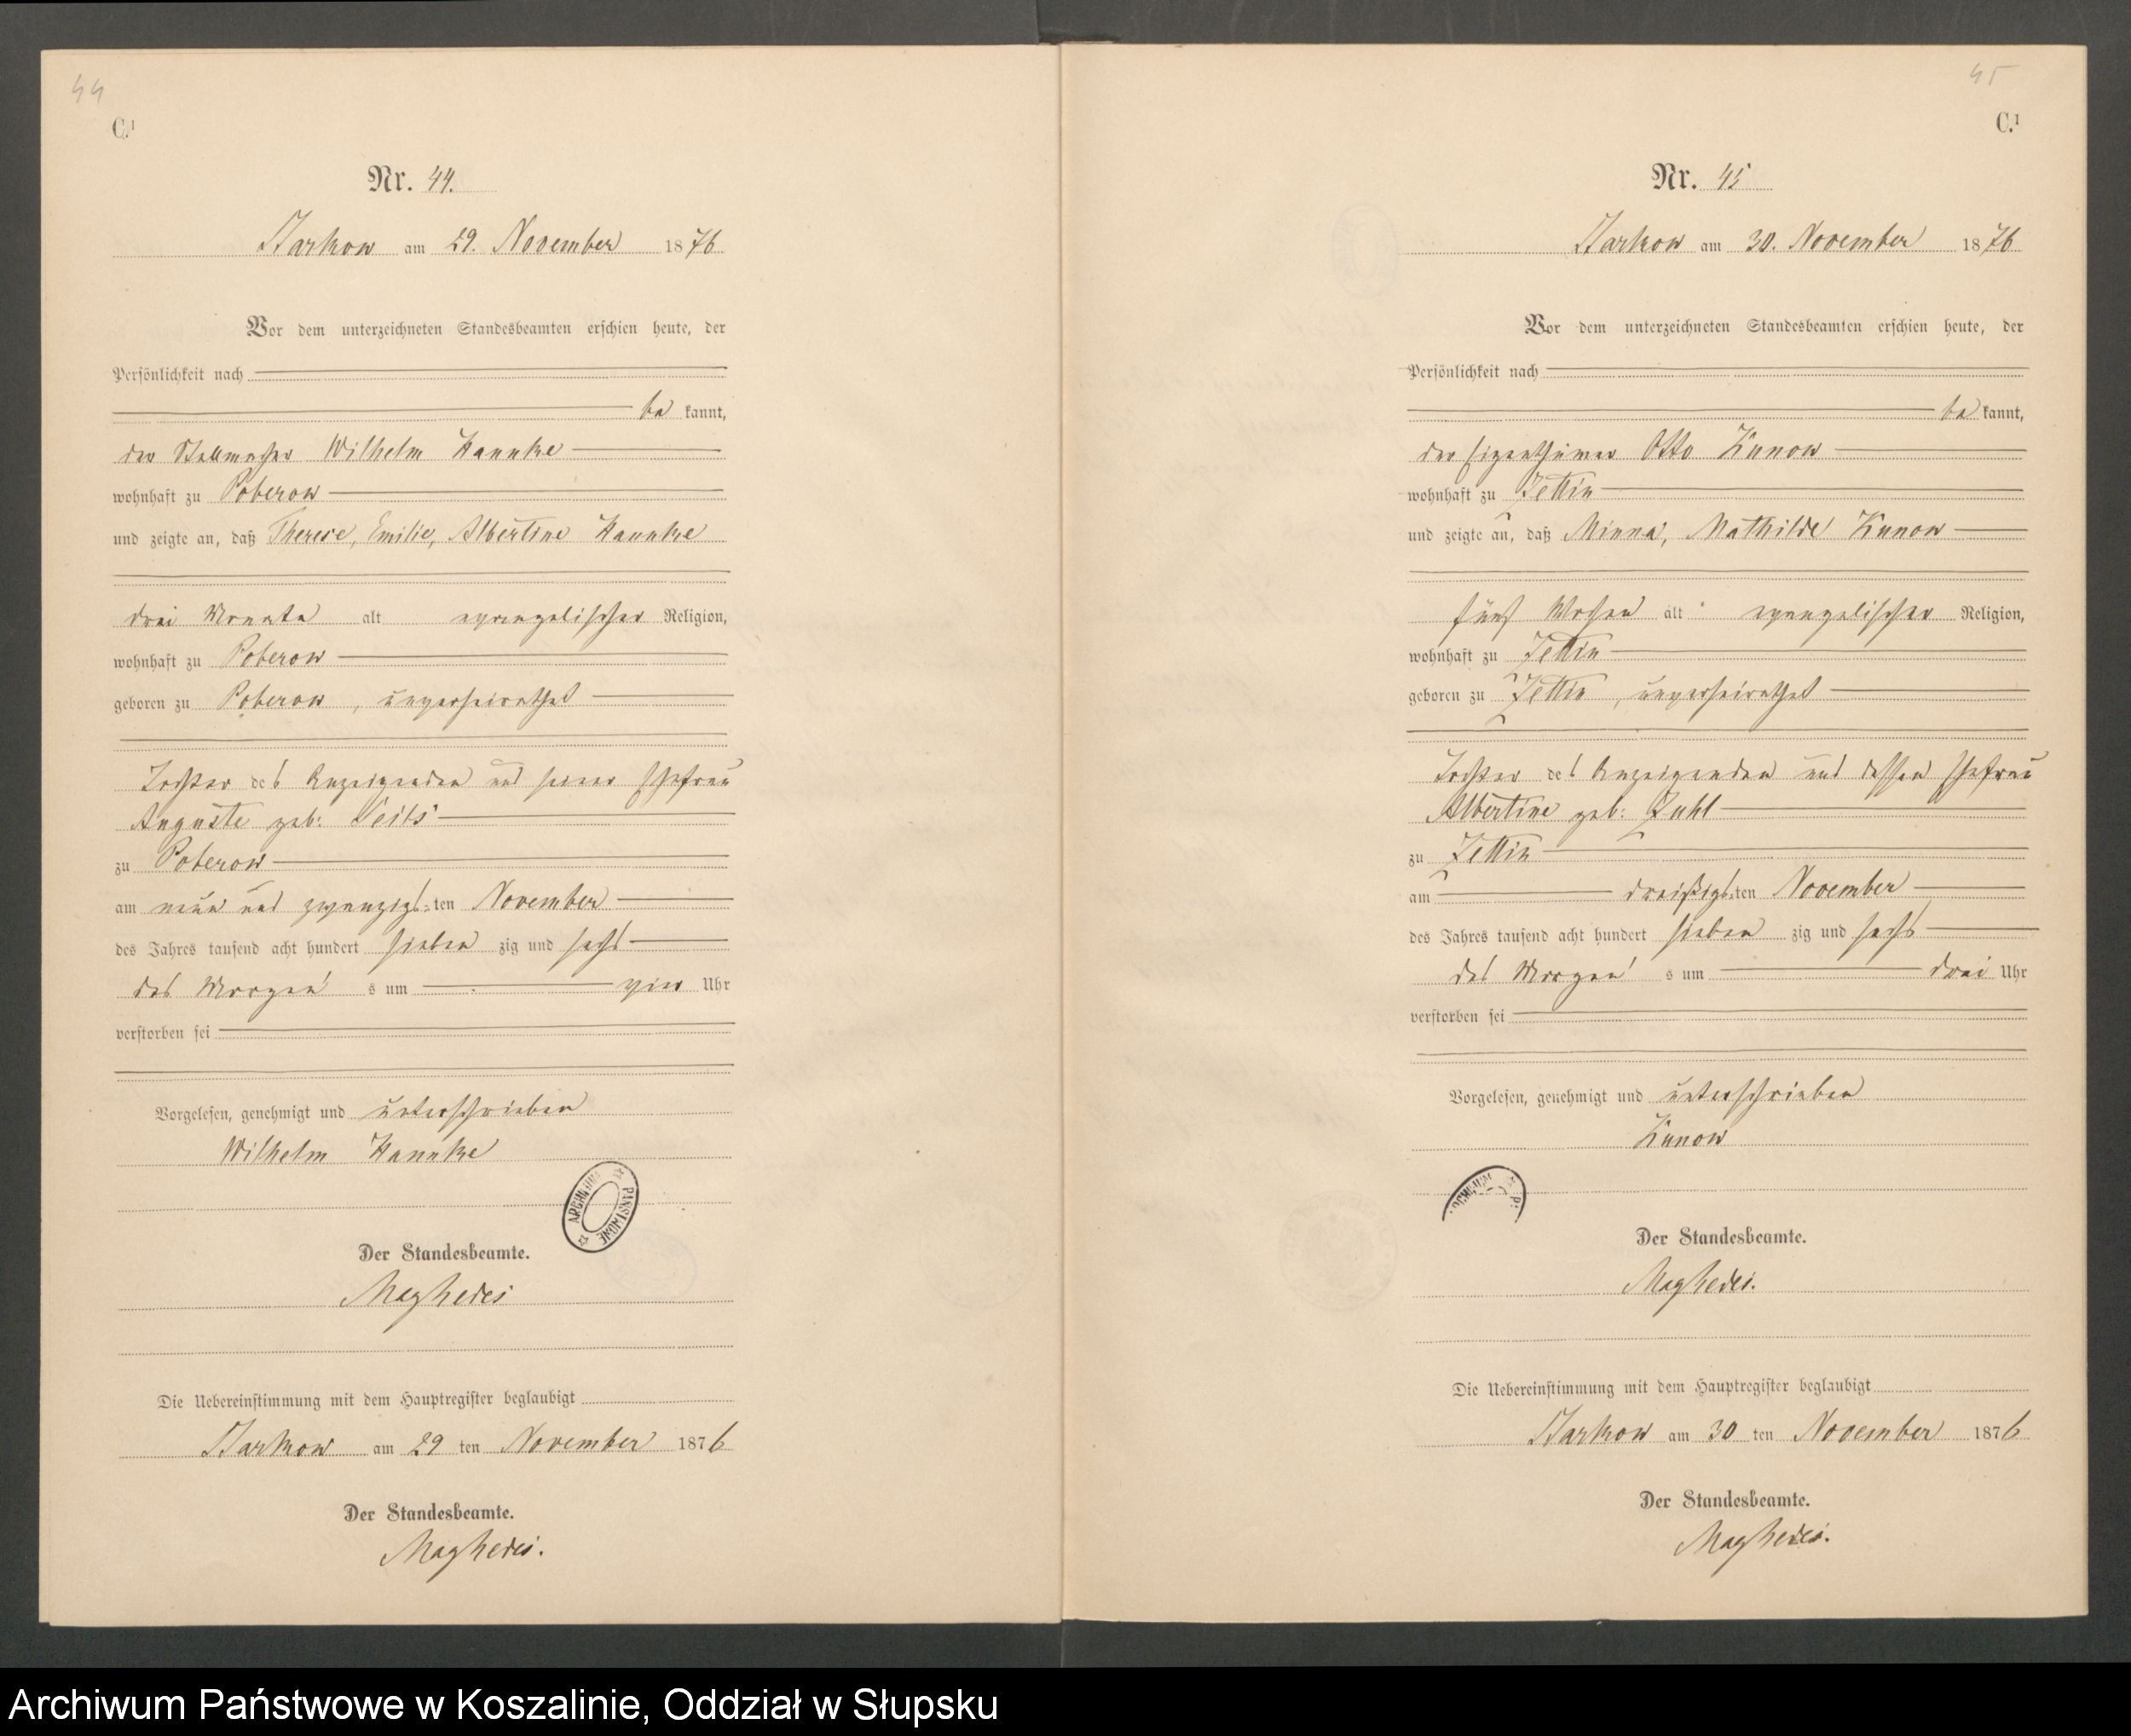 44
C.1
Nr. 44.
Starkow am 29. November 1876
Vor dem unterzeichneten Standesbeamten erschien heute, der
Persönlichkeit nach
be kannt,
der Stellmacher Wilhelm Hannke
wohnhaft zu Poberow
und zeigte an, daß Therese, Emilie, Albertine Hannke
drei Monate alt evangelischer Religion,
wohnhaft zu Poberow
geboren zu Poberow, unverheirathet
Tochter des Anzeigenden und seiner Ehefrau
Auguste geb:
zu Poberow
am neun und zwanzigs-ten November
des Jahres tausend acht hundert sieben zig und sechs
des Morgen s um vier Uhr
verstorben sei
Vorgelesen, genehmigt und unterschrieben
Wilhelm Hannke
ARCHIWUM PAŃSTWOWE
Der Standesbeamte.
Die Uebereinstimmung mit dem Hauptregister beglaubigt
Starkow am 29 ten November 1876
Der Standesbeamte.
45
C.1
Nr. 45
Starkow am 30. November 1876
Vor dem unterzeichneten Standesbeamten erschien heute, der
Persönlichkeit nach
be kannt,
der Eigenthümer Otto Kunow
wohnhaft zu Zettin
und zeigte an, daß Minna, Mathilde Kunow
fünf Wochen alt evangelischer Religion,
wohnhaft zu Zettin
geboren zu Zettin, unverheirathet
Tochter des Anzeigenden und dessen Ehefrau
Albertine geb: Zuhl
zu Zettin
am dreißigs-ten November
des Jahres tausend acht hundert sieben zig und sechs
des Morgen s um drei Uhr
verstorben sei
Vorgelesen, genehmigt und unterschrieben
Kunow
Der Standesbeamte.
Die Uebereinstimmung mit dem Hauptregister beglaubigt
Starkow am 30 ten November 1876
Der Standesbeamte.
Archiwum Państwowe w Koszalinie, Oddział w Słupsku